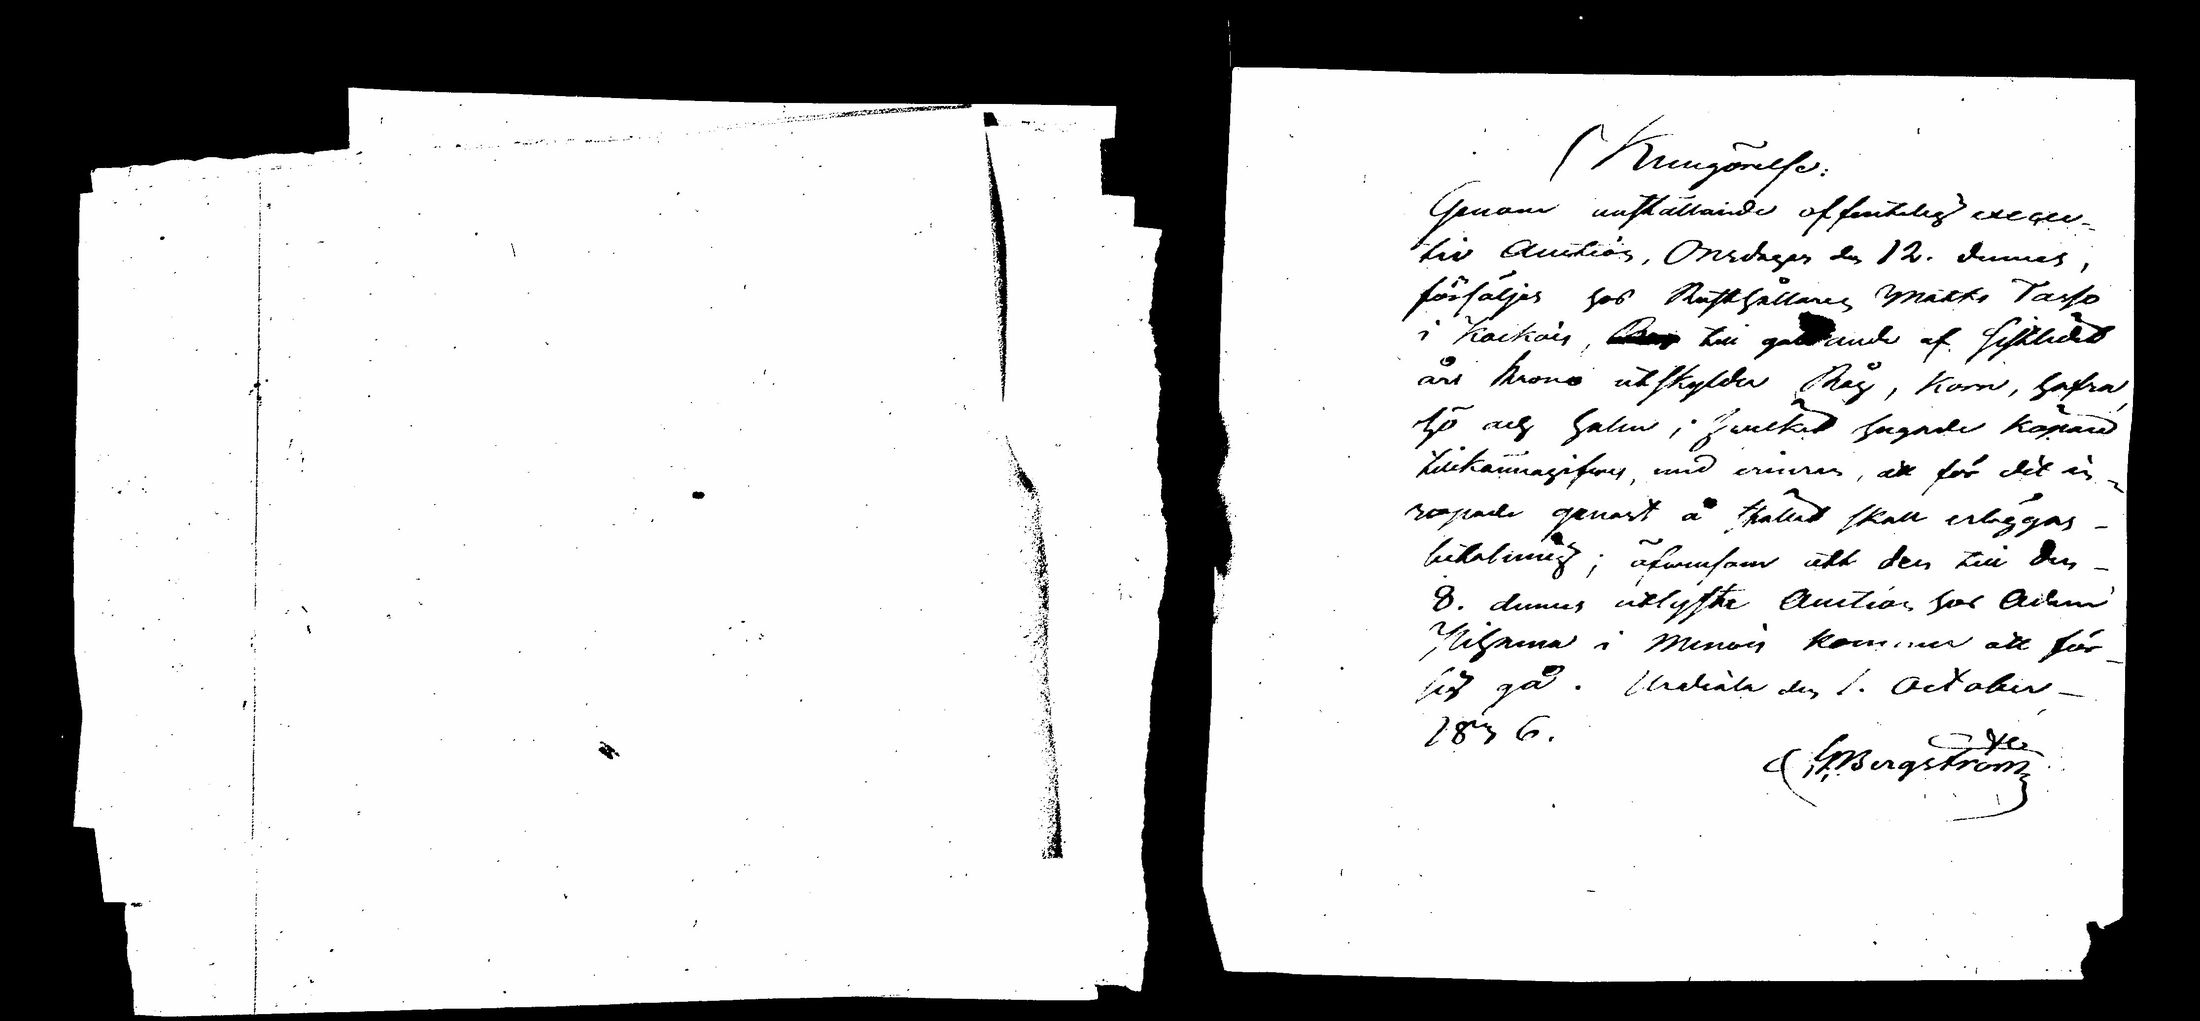 Kungörelse:
Genom anställande offentelig execu-
tiv Auction, Onsdagen den 12. dennes,
försäljes hos Rusthållaren Matts Tasso
i Kockois, till guldande af sistledet
års Krono utskylder Råg, Korn, hafra,
hö och halm; hvilket hugade köpare
tillkännagifves, med erinran, att för det in-
ropade genast å stället skall erläggas
betalning; äfvensom att den till den
8. dennes utlyste Auction hos Adam
i Menois kommer att för
sig gå. Urdiala den 1. October
1836.
Bergström